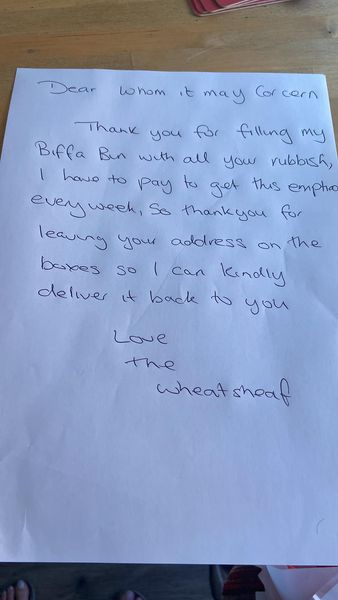 Dear whom it may Concern
Thank you for filling my
Biffa Bin with all your rubbish,
I have to pay to get this emptied
everyweek, So thankyou for
leaving your address on the
boxes so I can kindly
deliver it back to you
Love
the
wheatsheaf